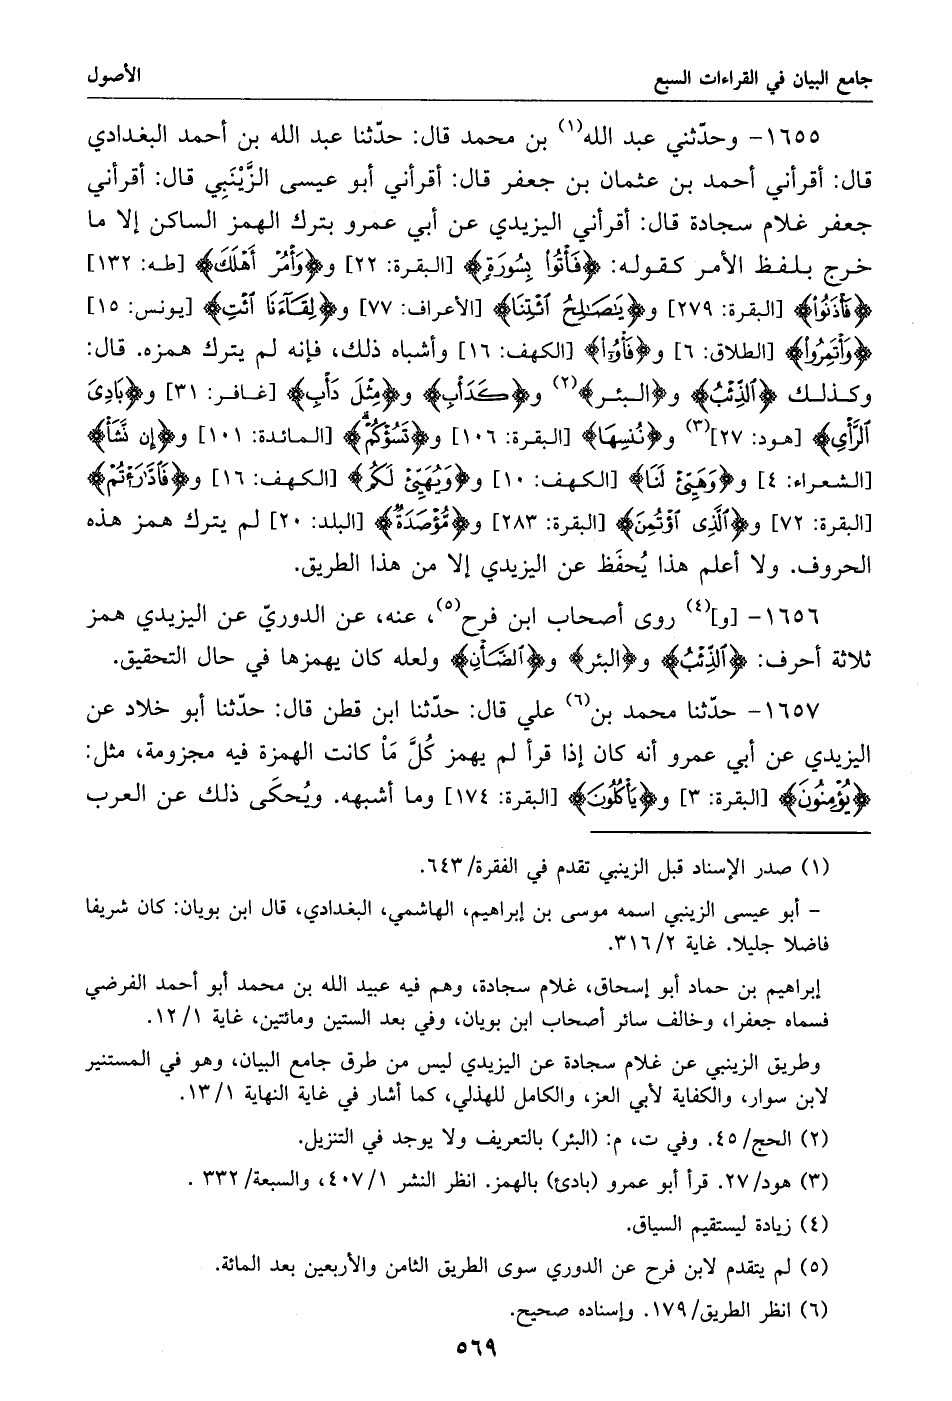 جامع البيان في القراءات السبع
الأصول
١٦٥٥- وحدّثني عبد الله(١) بن محمد قال: حدّثنا عبد الله بن أحمد البغدادي
قال: أقرأني أحمد بن عثمان بن جعفر قال: أقرأني أبو عيسى الزَّيْنَبِي قال: أقرأني
جعفر غلام سجادة قال: أقرأني اليزيدي عن أبي عمرو بترك الهمز الساكن إلا ما
خرج بلفظ الأمر كقوله: ﴿فَأْتُوا۟ بِسُورَةٍ﴾ [البقرة: ٢٢] و﴿وَأْمُرْ أَهْلَكَ﴾ [طه: ١٣٢]
﴿فَأْذَنُوا۟﴾ [البقرة: ٢٧٩] و﴿يَـٰصَـٰلِحُ ٱئْتِنَا﴾ [الأعراف: ٧٧] و﴿لِقَآءَنَا ٱئْتِ﴾ [يونس: ١٥]
﴿وَأْتَمِرُوا۟﴾ [الطلاق: ٦] و﴿فَأْوُۥٓا۟﴾ [الكهف: ١٦] وأشباه ذلك، فإنه لم يترك همزه. قال:
وكذلك ﴿ٱلذِّئْبُ﴾ و﴿البئر﴾(٢) و﴿كَدَأْبِ﴾ و﴿مِثْلَ دَأْبِ﴾ [غافر: ٣١] و﴿بَادِىَ
ٱلرَّأْىِ﴾ [هود: ٢٧](٣) و﴿نُنسِهَا﴾ [البقرة: ١٠٦] و﴿تَسُؤْكُمْ﴾ [المائدة: ١٠١] و﴿إِن نَّشَأْ﴾
[الشعراء: ٤] و﴿وَهَيِّئْ لَنَا﴾ [الكهف: ١٠] و﴿وَيُهَيِّئْ لَكُم﴾ [الكهف: ١٦] و﴿فَٱدَّٰرَْٰٔتُمْ﴾
[البقرة: ٧٢] و﴿ٱلَّذِى ٱؤْتُمِنَ﴾ [البقرة: ٢٨٣] و﴿مُّؤْصَدَةٌۢ﴾ [البلد: ٢٠] لم يترك همز هذه
الحروف. ولا أعلم هذا يُحفَظ عن اليزيدي إلا من هذا الطريق.
١٦٥٦- [و](٤) روى أصحاب ابن فرح(٥)، عنه، عن الدوريّ عن اليزيدي همز
ثلاثة أحرف: ﴿ٱلذِّئْبُ﴾ و﴿البئر﴾ و﴿ٱلضَّأْنِ﴾ ولعله كان يهمزها في حال التحقيق.
١٦٥٧- حدّثنا محمد بن(٦) علي قال: حدّثنا ابن قطن قال: حدّثنا أبو خلاد عن
اليزيدي عن أبي عمرو أنه كان إذا قرأ لم يهمز كُلَّ مَاْ كانت الهمزة فيه مجزومة، مثل:
﴿يُؤْمِنُونَ﴾ [البقرة: ٣] و﴿يَأْكُلُونَ﴾ [البقرة: ١٧٤] وما أشبهه. ويُحكَى ذلك عن العرب
(١) صدر الإسناد قبل الزينبي تقدم في الفقرة/ ٦٤٣.
- أبو عيسى الزينبي اسمه موسى بن إبراهيم، الهاشمي، البغدادي، قال ابن بويان: كان شريفا
فاضلا جليلا. غاية ٢/ ٣١٦.
إبراهيم بن حماد أبو إسحاق، غلام سجادة، وهم فيه عبيد الله بن محمد أبو أحمد الفرضي
فسماه جعفرا، وخالف سائر أصحاب ابن بويان، وفي بعد الستين ومائتين، غاية ١/ ١٢.
وطريق الزينبي عن غلام سجادة عن اليزيدي ليس من طرق جامع البيان، وهو في المستنير
لابن سوار، والكفاية لأبي العز، والكامل للهذلي، كما أشار في غاية النهاية ١/ ١٣.
(٢) الحج/ ٤٥. وفي ت، م: (البئر) بالتعريف ولا يوجد في التنزيل.
(٣) هود/ ٢٧. قرأ أبو عمرو (بادئ) بالهمز. انظر النشر ١/ ٤٠٧، والسبعة/ ٣٣٢ .
(٤) زيادة ليستقيم السياق.
(٥) لم يتقدم لابن فرح عن الدوري سوى الطريق الثامن والأربعين بعد المائة.
(٦) انظر الطريق/ ١٧٩. وإسناده صحيح.
٥٦٩